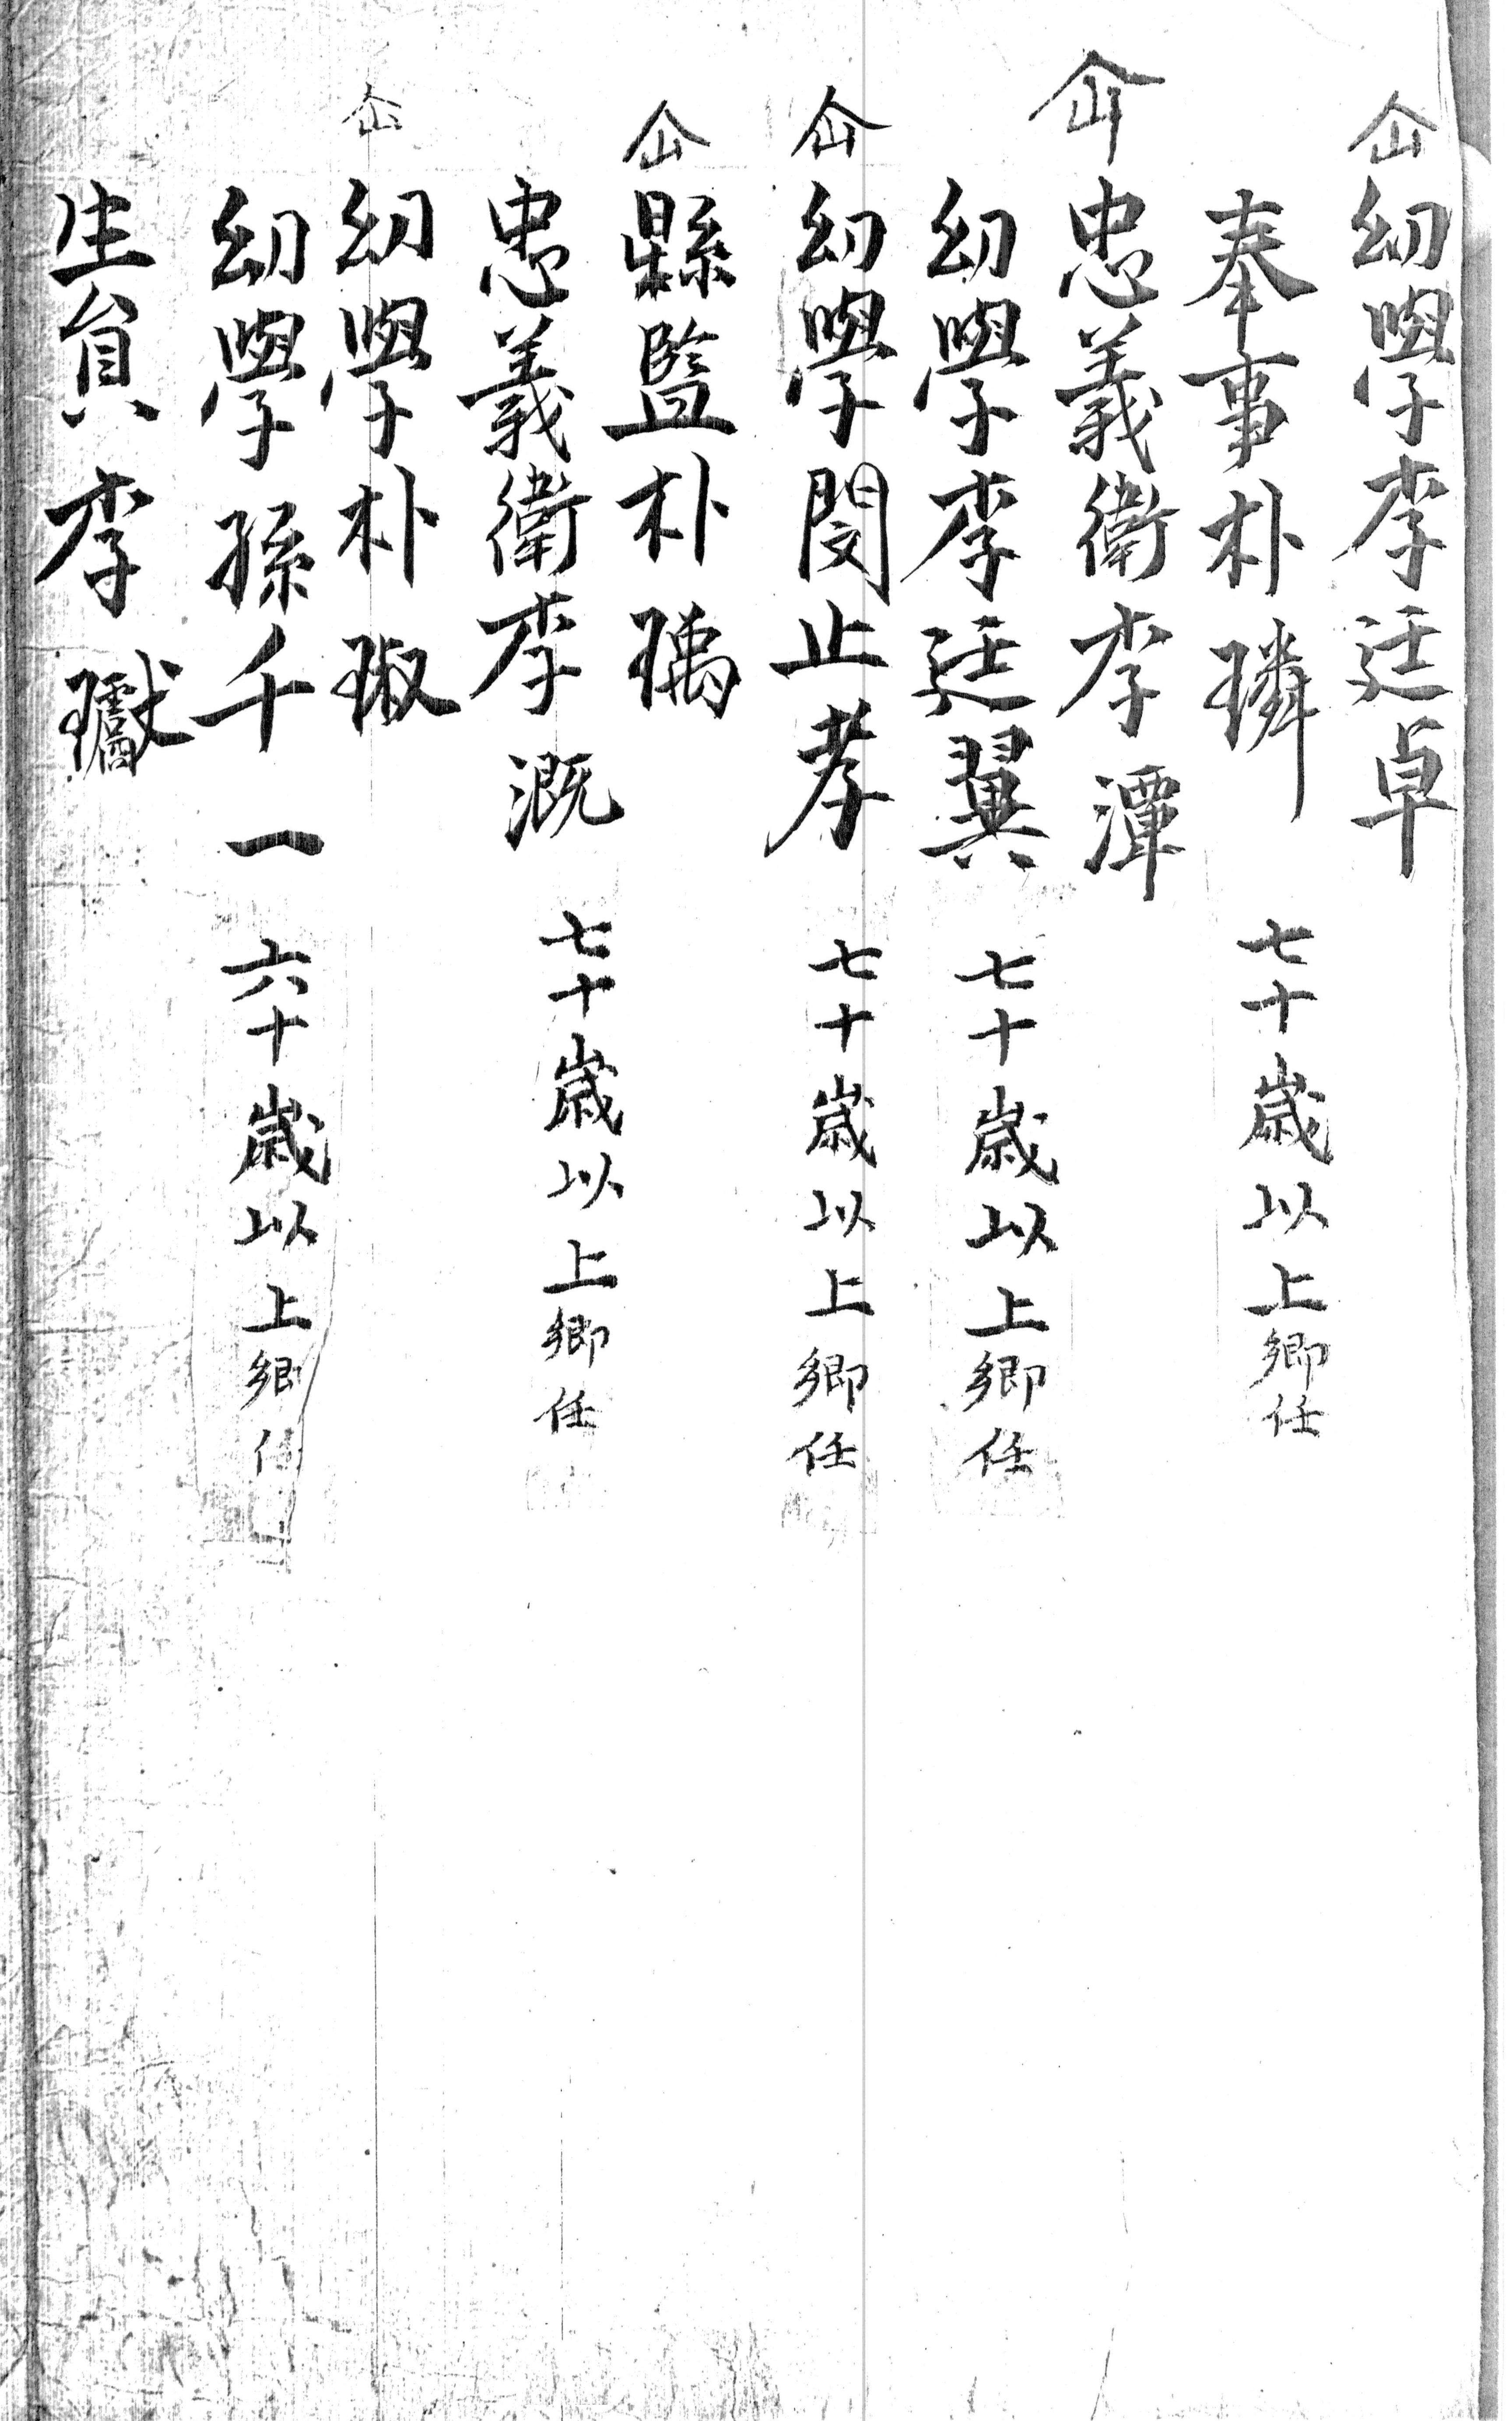 仚幼學李廷卓
奉事朴璘 七十歲以上鄕任
忠義衛李潭
幼學李廷翼 七十歲以上鄕任
仚幼學閔止孝 七十歲以上鄕任
仚縣監朴瑀
忠義衛李漑 七十歲以上鄕任
仚幼學朴琡
幼學孫千一 六十歲以上鄕任
生員李瓛